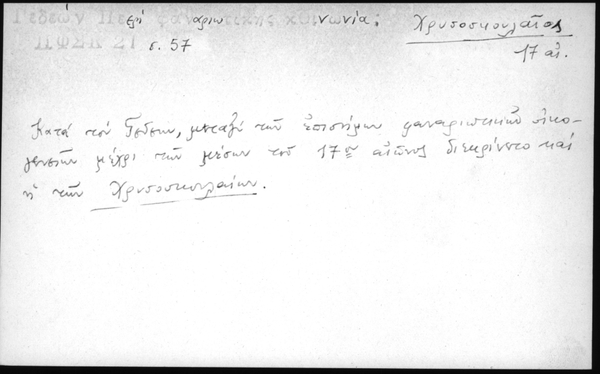 Γεδεών Περὶ φαναριωτικῆς κοινωνίας Χρυσοσκουλαῖος
ΠΦΣΚ 21 σ. 57 17 αἰ.
Κατά τόν Γεδεών, μεταξύ τῶν ἐπισήμων φαναριωτικῶν οἰκο-
γενειῶν μέχρι τῶν μέσων τοῦ 17ου αἰῶνος διεκρίνετο καί
ἡ τῶν Χρυσοσκουλαίων.